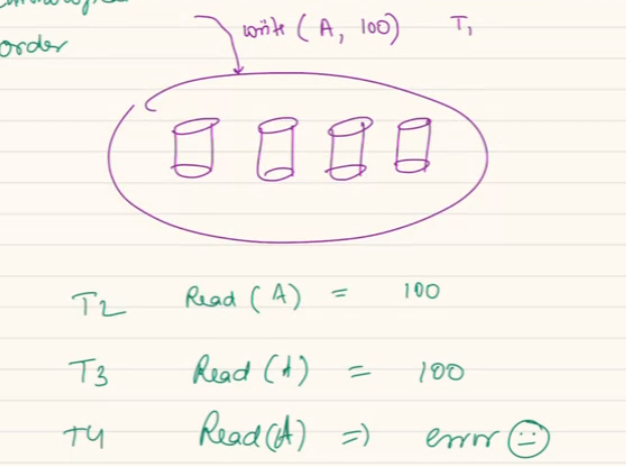 order
write (A, 100) T1
T2 Read (A) = 100
T3 Read (A) = 100
T4 Read(A) => error